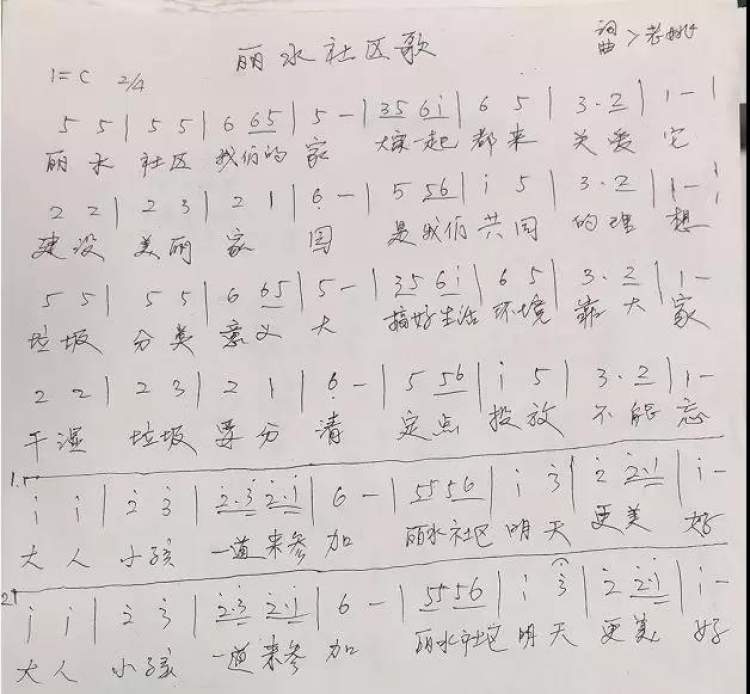 丽水社区歌
词
曲 > 老姚
1=C 2/4
5 5 | 5 5 | 6 65 | 5 - | 35 6i | 6 5 | 3·2 | 1 - |
丽水 社区 我们的 家 大家一起 都来 关爱 它
2 2 | 2 3 | 2 1 | 6̣ - | 5 56 | i 5 | 3·2 | 1 - |
建设 美丽 家 园 是我们 共同 的理 想
5 5 | 5 5 | 6 65 | 5 - | 35 6i | 6 5 | 3·2 | 1 -
垃圾 分类 意义 大 搞好生活 环境 靠大 家
2 2 | 2 3 | 2 1 | 6̣ - | 5 56 | i 5 | 3·2 | 1 -
干湿 垃圾 要分 清 定点 投放 不能 忘
1. i i | 2̇ 3̇ | 2̇·3̇ 2̇·i | 6 - | 55 56 | i 3̇ | 2̇ 2̇·i | i -
大人 小孩 一道来参 加 丽水社区 明天 更美 好
2. i i | 2̇ 3̇ | 2̇·3̇ 2̇·i | 6 - | 55 56 | i 3̇ | 2̇ 2̇·i | i -
大人 小孩 一道来参 加 丽水社区 明天 更美 好